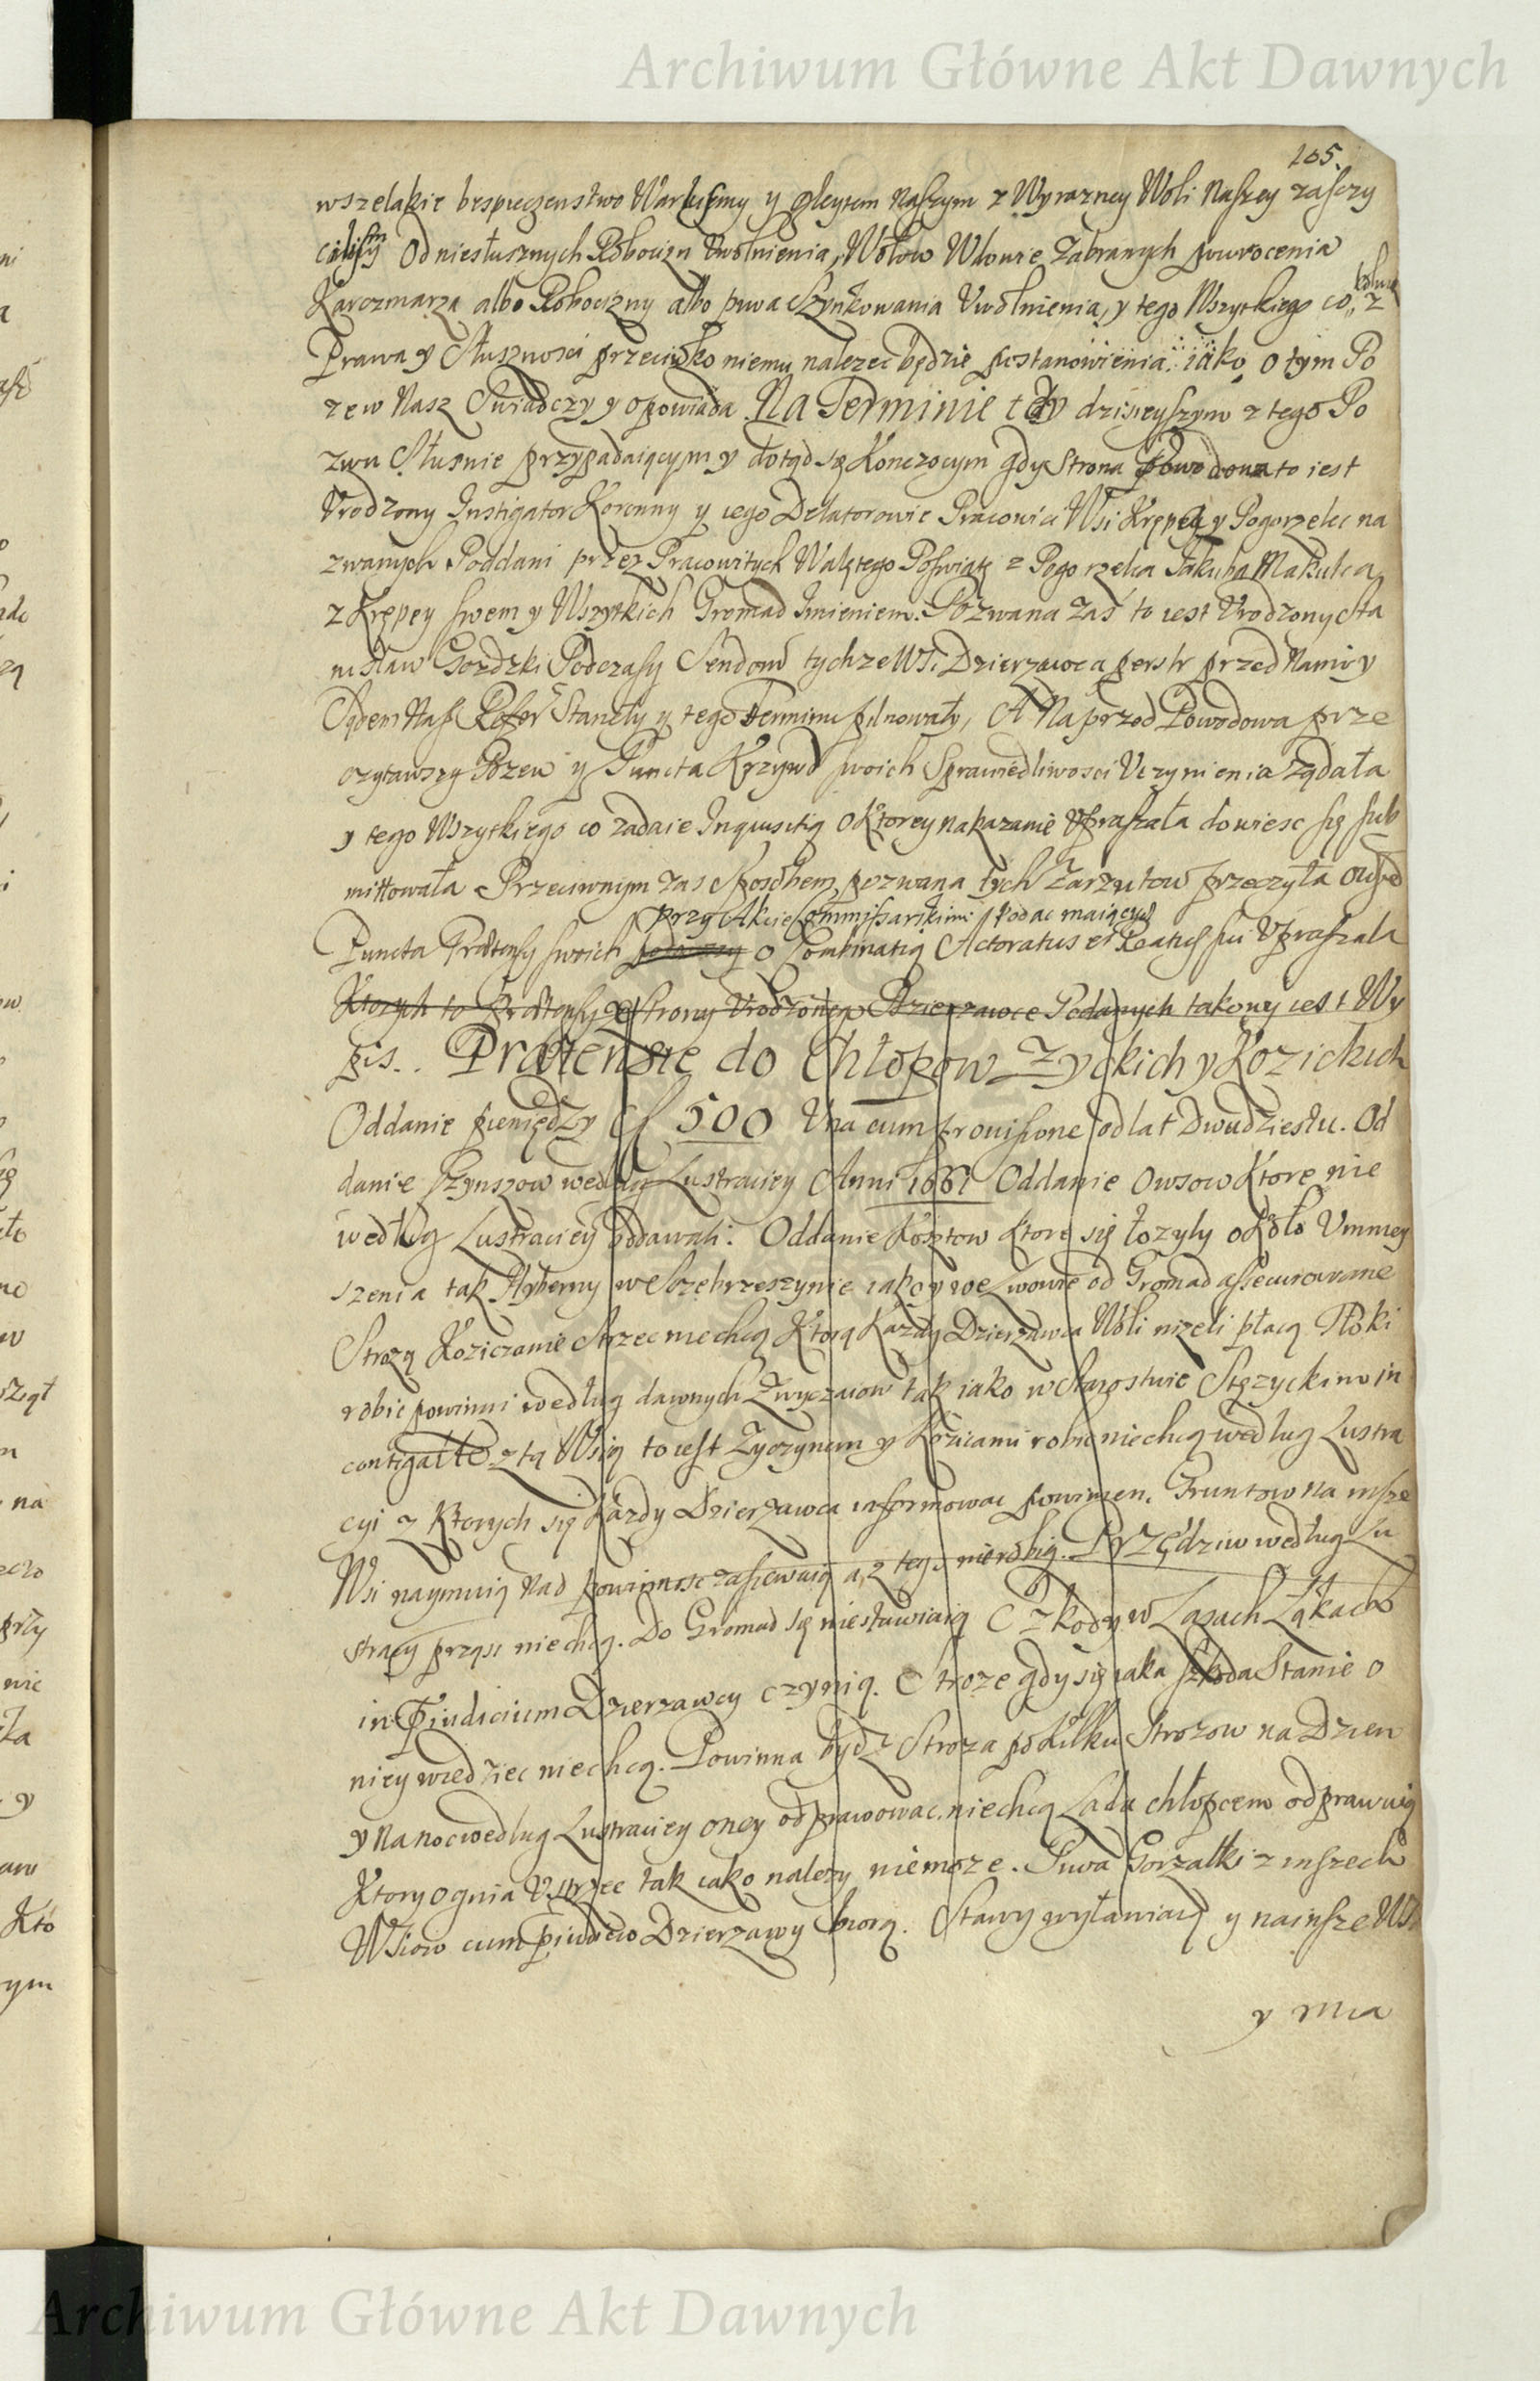 Archiwum Główne Akt Dawnych
105.
wszelakie bespieczenstwo Waruiemy y gleytem naszym z Wyrazney Woli Naszey zaszczy
cilismy Od niesłusznych Robocizn Uwolnienia, Wołow Wdowie Zabranych powrocenia
kolwiek
Karczmarza albo Robocizny albo piwa Szynkowania Vwolnienia, y tego Wszytkiego co z
Prawa y Słusznosci przeciwko niemu nalezec będzie postanowienia. iako o tym Po
zew Nasz Swiadczy y opowiada. Na Terminie tedy dzisieyszym z tego Po
zwu Słusnie przypadaiącym y dotąd się Konczocym gdy Strona Powodowa to iest
Vrodzony Instigator Koronny y iego Delatorowie Pracowici Wsi Krępey y Pogorzelec na
zwanych Poddani przez Pracowitych Walętego Poswiatę z Pogorzelca Jakuba Makulca
z Krępey swem y Wszytkich Gromad Imieniem. Pozwana zas to iest Vrodzony Sta
nisław Gozdzki Podczaszy Sendom tychze Wsi Dzierzawca persr przed Nami y
Sądem Nasz Refer Stanęły y tego Terminu pilnowały, A Naprzod Powodowa prze
czytawszy Pozew y Puncta Krzywd swoich Sprawiedliwosci Vczynienia Ządała
y tego Wszytkiego co zadaie Inquisitią o Ktorey nakazanie Vpraszała dowiesc się sub
mittowała Przeciwnym zas Sposobem pozwana tych Zarzutow przeczyła
przy Akcie Commissarskim podac maiących
Puncta Praetensy swoich o Combinatią Actoratus et Reatus sui Vpraszała
Ktorych to Praetensy ze strony Vrodzonego Dzierzawce Podanych takowy iest Wy
pis.. Praetensie do Chłopow Zyckich y Kozickich
Oddanie pieniędzy 500 Vna cum prouisione od lat Dwudziestu. Od
danie Czynszow według Lustraciey Anni 1661 Oddanie Owsow Ktore nie
według Lustraciey oddawali. Oddanie Kosztow ktore się łozyly około Vmniey
szenia tak Hyberny we Szczebrzeszynie iako y we Lwowie od Gromad assecurowane
Strozą Koziczanie Strzec niechcą Ktorą Kazdy Dzierzawca Woli nizeli płacą Tłoki
robic powinni według dawnych Zwyczaiow tak iako w Starostwie Stęzyckim in
contiguitte z tą Wsią to iest Zyczynem y Kozicami robic niechcą według Lustra
cyi z Ktorych się Kazdy Dzierzawca informowac powinien. Gruntow na insze
Wsi naymuią nad powinnosc zasiewaią a z tego nierobią. Przędziw według Lu
stracy prząsc niechcą. Do Gromad się niestawiaią Szkody w Lasach Łąkach
in Pjudicium Dzierzawcy czynią. Stroze gdy się iaka szkoda Stanie o
niey wiedziec niechcą. Powinna bydz Stroza po kilku Strozow na Dzien
y na noc według Lustraciey oney odprawowac niechcą Lada chłopcem odprawuią
Ktory ognia Vstrzec tak iako nalezy niemoze. Piwa Gorzałki z inszech
Wsiow cum piudicio Dzierzawy biorą. Stawy wyławiaią y na insze Wsi
y Mia
Archiwum Główne Akt Dawnych